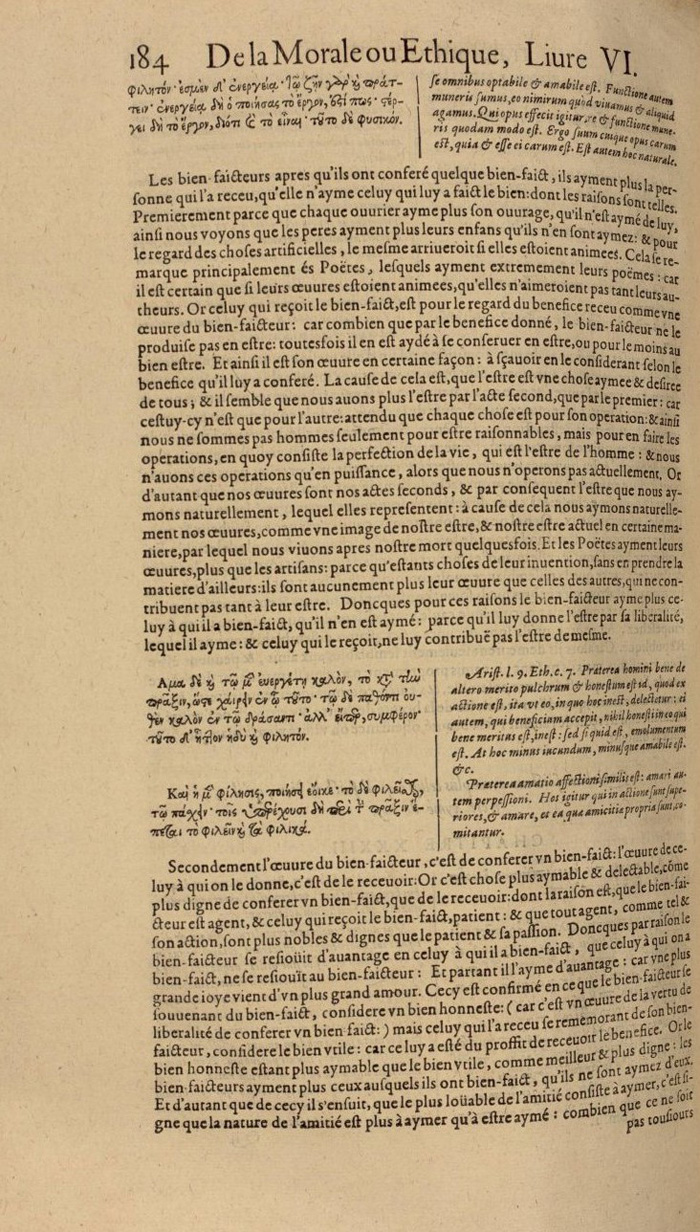 184 De la Morale ou Ethique, Liure VI.
φιλητόν· ἐσμὲν δ' ἐνεργείᾳ· τῷ ζῆν γὰρ ϗ πράτ-
τειν· ἐνεργείᾳ δὴ ὁ ποιήσας τὸ ἔργον, ὅς ἐστί πως· στέρ-
γει δὴ τὸ ἔργον, διότι ϗ τὸ εἶναι· τῦτο δὲ φυσικόν.
se omnibus optabile & amabile est. Functione autem
muneris sumus, eo nimirum quòd viuamus & aliquid
agamus. Qui opus effecit igitur, re & functione mune-
ris quodam modo est. Ergo suum cuique opus carum
est, quia & esse ei carum est. Est autem hoc naturale.
Les bien-faicteurs apres qu'ils ont conferé quelque bien-faict, ils ayment plus la per-
sonne qui l'a receu, qu'elle n'ayme celuy qui luy a faict le bien: dont les raisons sont telles.
Premierement parce que chaque ouurier ayme plus son ouurage, qu'il n'est aymé de luy,
ainsi nous voyons que les peres ayment plus leurs enfans qu'ils n'en sont aymez: & pour
le regard des choses artificielles, le mesme arriueroit si elles estoient animees. Cela se re-
marque principalement és Poëtes, lesquels ayment extremement leurs poëmes: car
il est certain que si leurs œuures estoient animees, qu'elles n'aimeroient pas tant leurs au-
theurs. Or celuy qui reçoit le bien-faict, est pour le regard du benefice receu comme vne
œuure du bien-faicteur: car combien que par le benefice donné, le bien-faicteur ne le
produise pas en estre: toutesfois il en est aydé à se conseruer en estre, ou pour le moins au
bien estre. Et ainsi il est son œuure en certaine façon: à sçauoir en le considerant selon le
benefice qu'il luy a conferé. La cause de cela est, que l'estre est vne chose aymee & desiree
de tous; & il semble que nous auons plus l'estre par l'acte second, que par le premier: car
cestuy-cy n'est que pour l'autre: attendu que chaque chose est pour son operation: & ainsi
nous ne sommes pas hommes seulement pour estre raisonnables, mais pour en faire les
operations, en quoy consiste la perfection de la vie, qui est l'estre de l'homme: & nous
n'auons ces operations qu'en puissance, alors que nous n'operons pas actuellement. Or
d'autant que nos œuures sont nos actes seconds, & par consequent l'estre que nous ay-
mons naturellement, lequel elles representent: à cause de cela nous aymons naturelle-
ment nos œuures, comme vne image de nostre estre, & nostre estre actuel en certaine ma-
niere, par lequel nous viuons apres nostre mort quelquesfois. Et les Poëtes ayment leurs
œuures, plus que les artisans: parce qu'estants choses de leur inuention, sans en prendre la
matiere d'ailleurs: ils font aucunement plus leur œuure que celles des autres, qui ne con-
tribuent pas tant à leur estre. Doncques pour ces raisons le bien-faicteur ayme plus ce-
luy à qui il a bien-faict, qu'il n'en est aymé: parce qu'il luy donne l'estre par sa liberalité,
lequel il ayme: & celuy qui le reçoit, ne luy contribuë pas l'estre de mesme.
Ἅμα δὲ ϗ τῷ μὲν εὐεργέτῃ καλὸν, τὸ κτ' τὴν
πρᾶξιν, ὥστε χαίρειν ἐν ᾧ τῦτο· τῷ δὲ παθόντι οὐ-
θὲν καλὸν ἐν τῷ δράσαντι· ἀλλ' εἴπερ, συμφέρον·
τῦτο δ' ἧττον ἡδὺ ϗ φιλητόν.
Arist. l. 9. Eth. c. 7. Præterea homini bene de
altero merito pulchrum & honestum est id, quod ex
actione est, ita vt eo, in quo hoc inest, delectetur: ei
autem, qui beneficium accepit, nihil honesti in eo qui
bene meritus est, inest: sed si quid est, emolumentum
est. At hoc minus iucundum, minusque amabile est.
&c.
Καὶ ἡ μὲν φίλησις, ποιήσει ἔοικε· τὸ δὲ φιλεῖσθαι,
τῷ πάσχειν· τοῖς ὑπερέχουσι δὴ περὶ τ' πρᾶξιν ἕ-
πεται τὸ φιλεῖν ϗ τὰ φιλικά.
Præterea amatio affectioni similis est: amari au-
tem perpessioni. Hos igitur qui in actione sunt supe-
riores, & amare, et ea quæ amicitiæ propria sunt, co-
mitantur.
Secondement l'œuure du bien-faicteur, c'est de conferer vn bien-faict: l'œuure de ce-
luy à qui on le donne, c'est de le receuoir: Or c'est chose plus aymable & delectable, cōme
plus digne de conferer vn bien-faict, que de le receuoir: dont la raison est, que le bien-fai-
cteur est agent, & celuy qui reçoit le bien-faict, patient: & que tout agent, comme tel &
son action, sont plus nobles & dignes que le patient & sa passion. Doncques par raison le
bien-faicteur se resioüit d'auantage en celuy à qui il a bien-faict, que celuy à qui on a
bien-faict, ne se resiouit au bien-faicteur: Et partant il l'ayme d'auantage: car vne plus
grande ioye vient d'vn plus grand amour. Cecy est confirmé en ce que le bien-faicteur se
souuenant du bien-faict, considere vn bien honneste: (car c'est vn œuure de la vertu de
liberalité de conferer vn bien-faict:) mais celuy qui l'a receu se rememorant de son bien-
faicteur, considere le bien vtile: car ce luy a esté du proffit de receuoir le benefice. Or le
bien honneste estant plus aymable que le bien vtile, comme meilleur & plus digne: les
bien-faicteurs ayment plus ceux ausquels ils ont bien-faict, qu'ils ne sont aymez d'eux.
Et d'autant que de cecy il s'ensuit, que le plus loüable de l'amitié consiste à aymer, c'est si-
gne que la nature de l'amitié est plus à aymer qu'à estre aymé: combien que ce ne soit
pas tousiours